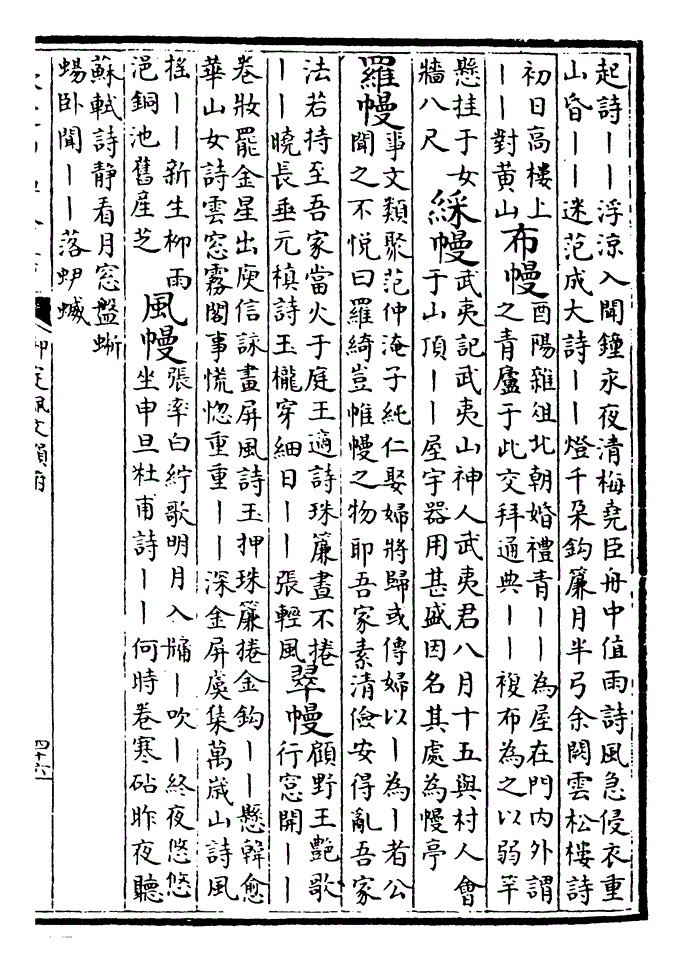 起詩――浮涼入聞鐘永夜清梅堯臣舟中值雨詩風急侵衣重
山昏――迷范成大詩――燈千朵鈎簾月半弓余闕雲松樓詩
初日高樓上
――對黃山
布幔
酉陽雜俎北朝婚禮青――為屋在門内外謂
之青廬于此交拜通典――複布為之以弱竿
懸挂于女
牆八尺
綵幔
武夷記武夷山神人武夷君八月十五與村人會
于山頂――屋宇器用甚盛因名其處為幔亭
羅幔
事文類聚范仲淹子純仁娶婦將歸或傳婦以―為―者公
聞之不悅曰羅綺豈帷幔之物耶吾家素清儉安得亂吾家
法若持至吾家當火于庭王適詩珠簾晝不捲
――曉長垂元稹詩玉櫳穿細日――張輕風
翠幔
顧野王艷歌
行窓開――
卷妝罷金星出庾信詠畫屏風詩玉押珠簾捲金鈎――懸韓愈
華山女詩雲窓霧閣事慌惚重重――深金屏虞集萬歲山詩風
摇――新生柳雨
浥銅池舊産芝
風幔
張率白紵歌明月入牖―吹―終夜悠悠
坐申旦杜甫詩――何時卷寒砧昨夜聽
蘇軾詩靜看月窓盤蜥
蜴卧聞――落蛜蝛
四十六